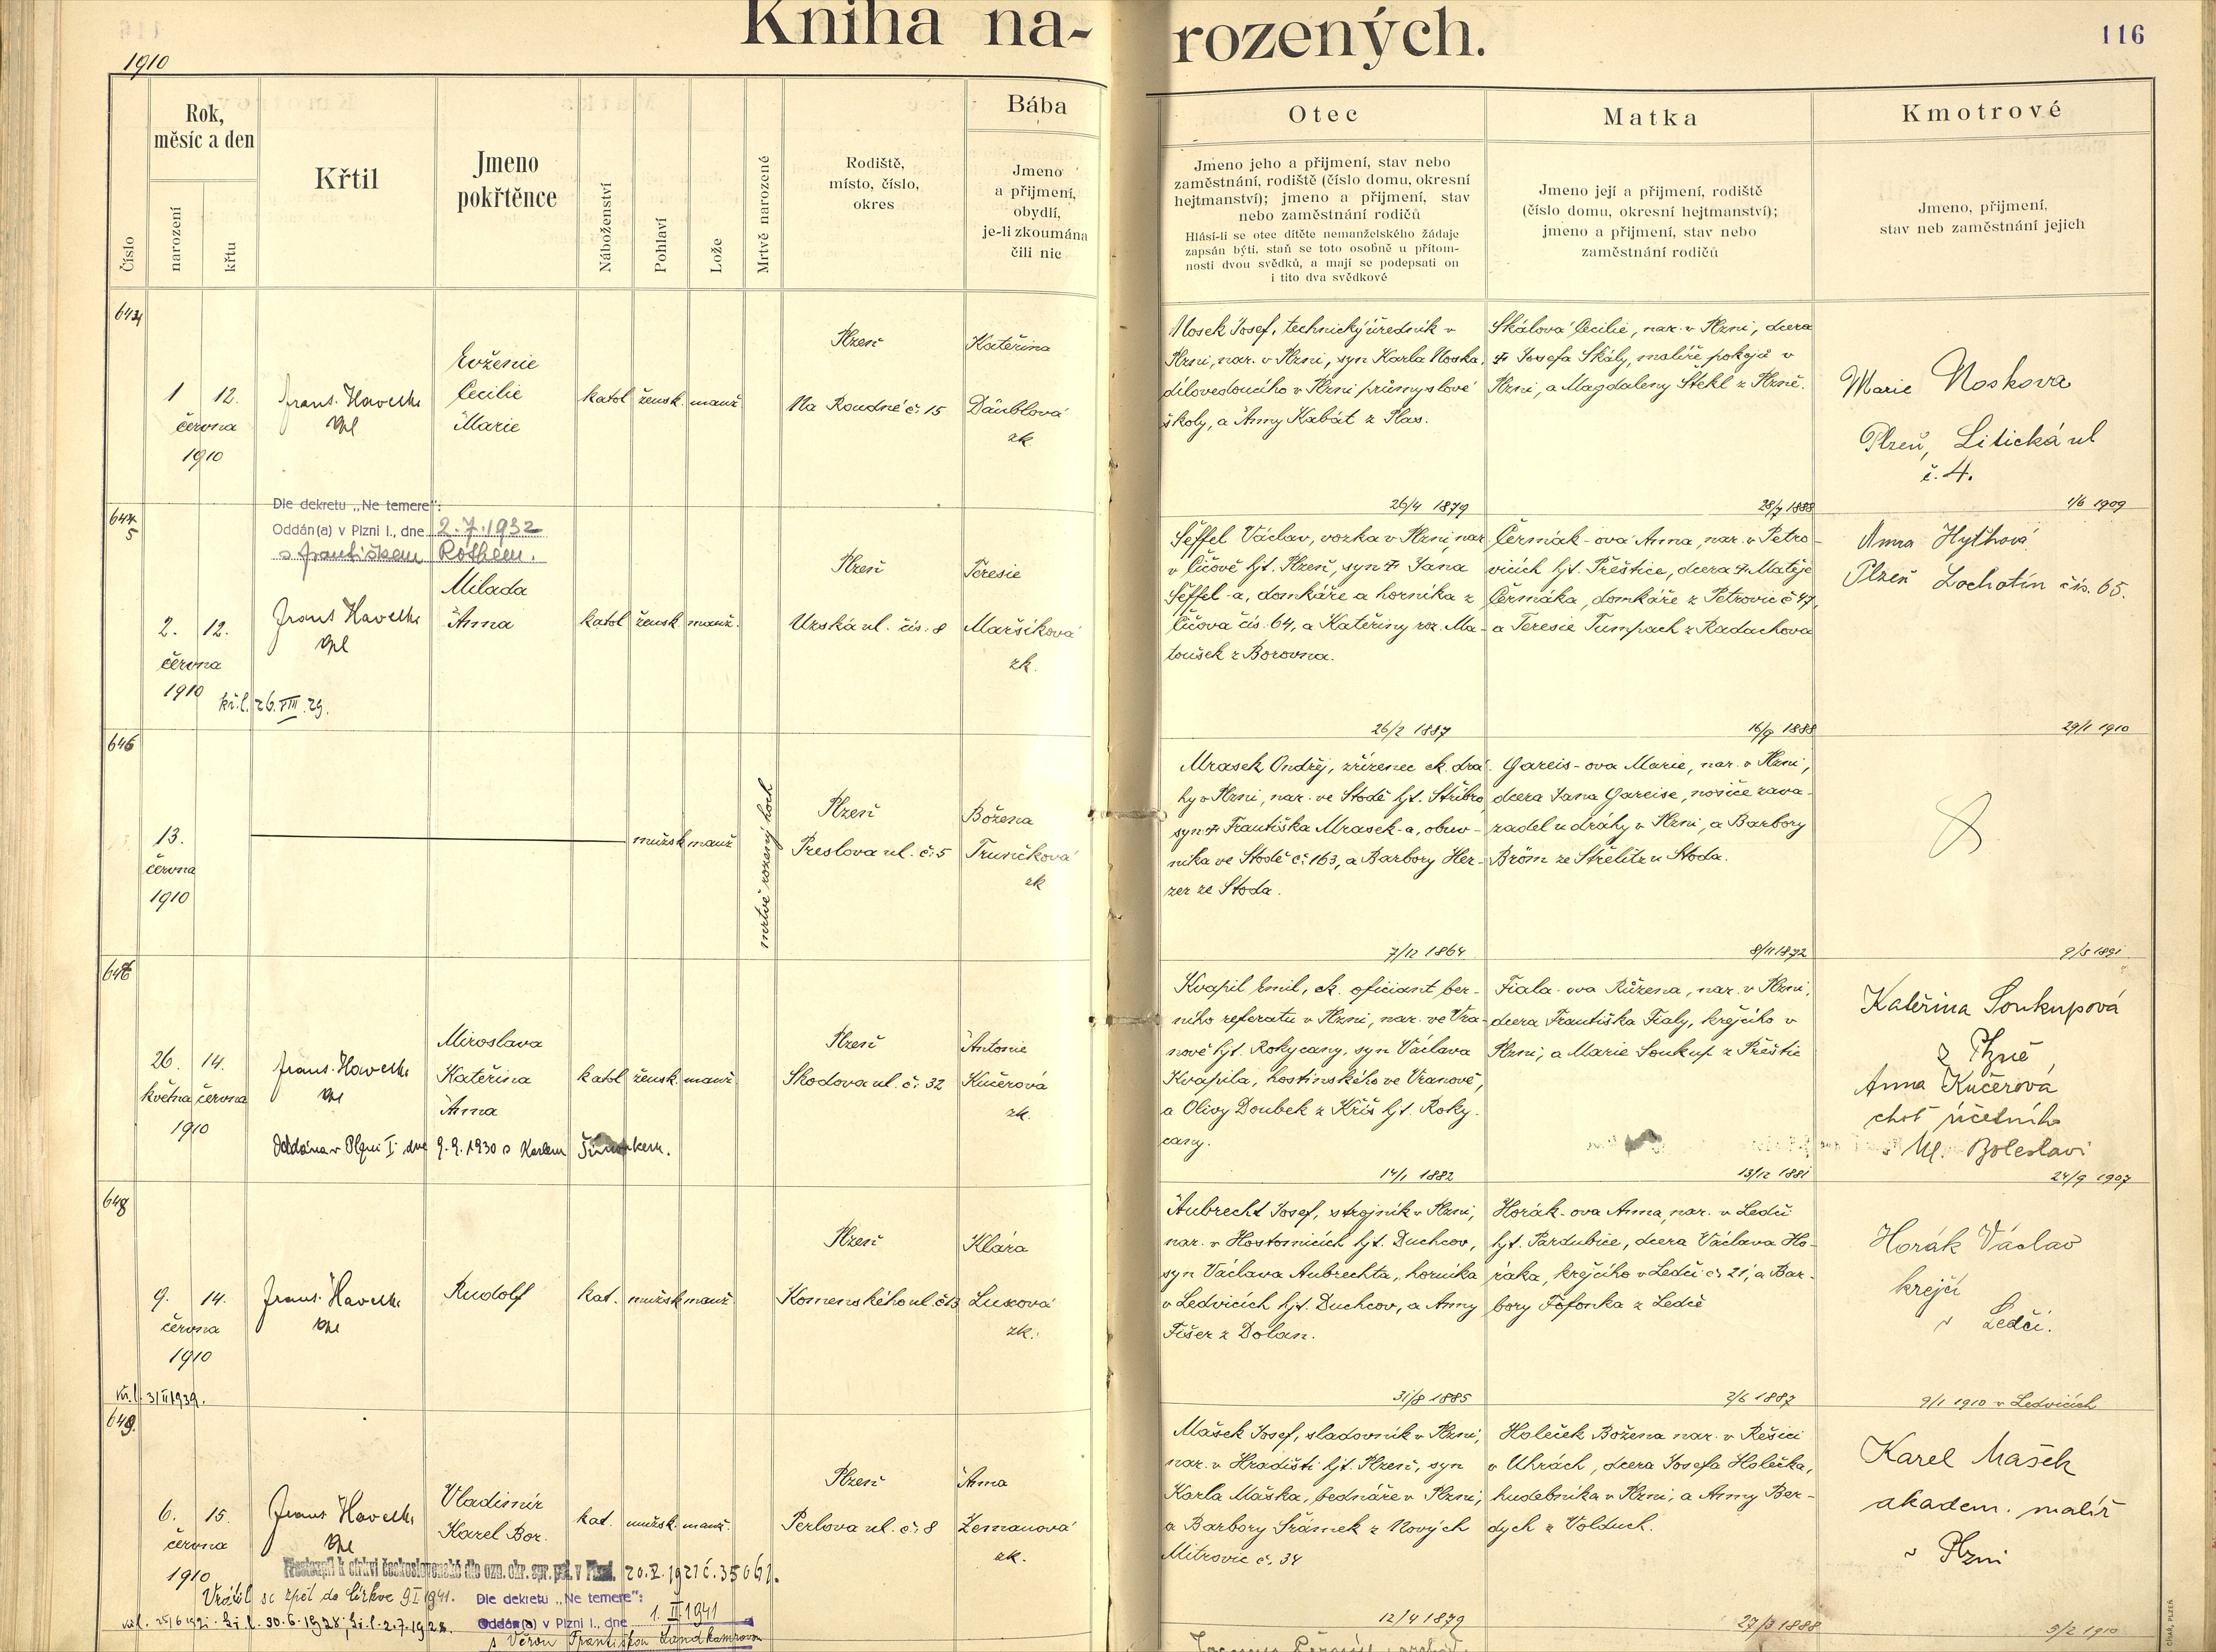 Kniha na-
rozených.
116
1910
Číslo
Rok,
měsíc a den
narození
křtu
Křtil
Jmeno
pokřtěnce
Náboženství
Pohlaví
Lože
Mrtvě narozené
Rodiště,
místo, číslo,
okres
Bába
Jmeno
a přijmení,
obydlí,
je-li zkoumána
čili nic
Otec
Jmeno jeho a přijmení, stav nebo
zaměstnání, rodiště (číslo domu, okresní
hejtmanství); jmeno a přijmení, stav
nebo zaměstnání rodičů
Hlásí-li se otec dítěte nemanželského žádaje
zapsán býti, staň se toto osobně u přítom-
nosti dvou svědků, a mají se podepsati on
i tito dva svědkové
Matka
Jmeno její a přijmení, rodiště
(číslo domu, okresní hejtmanství);
jmeno a přijmení, stav nebo
zaměstnání rodičů
Kmotrové
Jmeno, přijmení,
stav neb zaměstnání jejich
644
1 12.
června
1910
Frant. Havelka
Evženie
Cecilie
Marie
katol žensk. manž.
Plzeň
Na Roudné č. 15
Kateřina
Däublová
zk.
Nosek Josef, technický úředník v
Plzni, nar. v Plzni, syn Karla Noska,
dílovedoucího v Plzni průmyslové
školy, a Anny Kabát z Plas.
26/4 1879
Skálová Cecilie, nar. v Plzni, dcera
† Josefa Skály, malíře pokojů v
Plzni, a Magdaleny Stekl z Plzně.
28/7 1888
Marie Noskova
Plzeň, Litická ul
č. 4.
1/6 1909
645
Dle dekretu „Ne temere":
Oddán(a) v Plzni I., dne 2.7.1932
s Františkem Rothem.
2. 12.
června
1910
kř.l. 26.VIII.29.
Frant Havelka
Milada
Anna
katol žensk manž.
Plzeň
Uzská ul. čís. 8
Teresie
Maršíková
zk.
Šeffel Václav, vozka v Plzni, nar.
v Čičově hjt. Plzeň, syn † Jana
Šeffel-a, domkáře a horníka z
Čičova čís. 64, a Kateřiny roz. Ma-
toušek z Borovna.
26/2 1887
Čermák-ová Anna, nar. v Petro-
vicích hjt. Přeštice, dcera † Matěje
Čermáka, domkáře z Petrovic č 47,
a Teresie Tumpach z Radachova
16/9 1888
Anna Hythová
Plzeň Lochotín čís. 65.
29/1 1910
646
13.
června
1910
mužsk manž
mrtvě rozený hoch
Plzeň
Preslova ul. č. 5
Božena
Truníčková
zk
Mrasek Ondřej, zřízenec ck. drá-
hy v Plzni, nar. ve Stodě hjt. Stříbro,
syn † Františka Mrasek-a, obuv-
níka ve Stodě č. 163, a Barbory Her-
zer ze Stoda.
7/12 1864
Gareis-ova Marie, nar. v Plzni,
dcera Jana Gareise, nosiče zava-
zadel u dráhy v Plzni, a Barbory
Bröm ze Střelitz u Stoda.
8/11 1872
9/5 1891
647
26. 14.
května června
1910
Frant. Havelka
Miroslava
Kateřina
Anna
katol žensk. manž.
Oddána v Plzni I. dne 9.9.1930 s Karlem
Plzeň
Skodova ul. č. 32
Antonie
Kučerová
zk.
Kvapil Emil, ck. oficiant ber-
ního referatu v Plzni, nar. ve Vra-
nově hjt. Rokycany, syn Václava
Kvapila, hostinského ve Vranově,
a Olivy Doubek z Kříš hjt. Roky-
cany.
14/1 1882
Fiala-ova Růžena, nar. v Plzni,
dcera Františka Fialy, krejčího v
Plzni, a Marie Soukup z Přeštic
13/12 1881
Kateřina Soukupová
z Plzně
Anna Kučerová
choť účetního
v Ml. Boleslavi
24/9 1907
648
9. 14.
června
1910
kř.l. 31/II 1939.
Frant. Havelka
Rudolf
kat. mužsk manž.
Plzeň
Komenského ul. č 13
Klára
Luxová
zk.
Aubrecht Josef, strojník v Plzni,
nar. v Hostomicích hjt. Duchcov,
syn Václava Aubrechta, horníka
v Ledvicích hjt. Duchcov, a Anny
Fišer z Dolan.
31/8 1885
Horák-ova Anna, nar. v Ledči
hjt. Pardubice, dcera Václava Ho-
ráka, krejčího v Ledči č. 21, a Bar-
bory Fofonka z Ledče
2/6 1887
Horák Václav
krejčí
v Ledči.
9/1 1910 v Ledvicích
649.
6. 15.
června
1910
Frant Havelka
Vladimír
Karel Bor.
kat. mužsk. manž.
Přestoupil k církvi československé dle ozn. okr. spr. pol. v Plzni. 20.V.1921 č. 35061.
Vrátil se zpět do církve 9.I.1941.
Dle dekretu „Ne temere":
Oddán(a) v Plzni I., dne 1.II.1941
s Věrou Františkou Landkamrovou
Plzeň
Perlova ul. č. 8
Anna
Zemanová
zk.
Mašek Josef, sladovník v Plzni,
nar. v Hradišti hjt. Plzeň, syn
Karla Maška, bednáře v Plzni,
a Barbory Šrámek z Nových
Mitrovic č. 34
12/4 1879
Holeček Božena nar. v Rěšici
v Uhrách, dcera Josefa Holečka,
hudebníka v Plzni, a Anny Ber-
dych z Volduch.
27/3 1888
Karel Mašek
akadem. malíř
v Plzni
5/2 1910